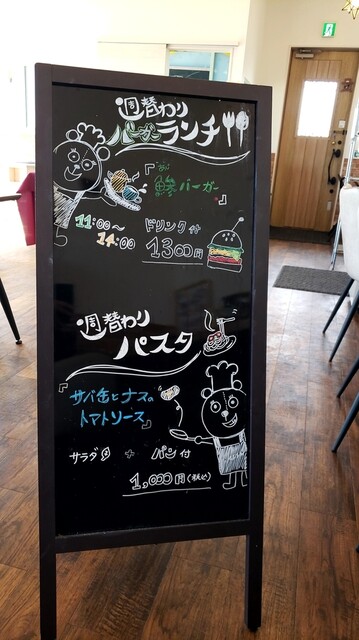 週替わり
バーガーランチ
『鯵バーガー』
11:00〜
14:00
ドリンク付
1300円
週替わり
パスタ
『サバ缶とナスの
トマトソース』
サラダ + パン付
1,000円(税込)